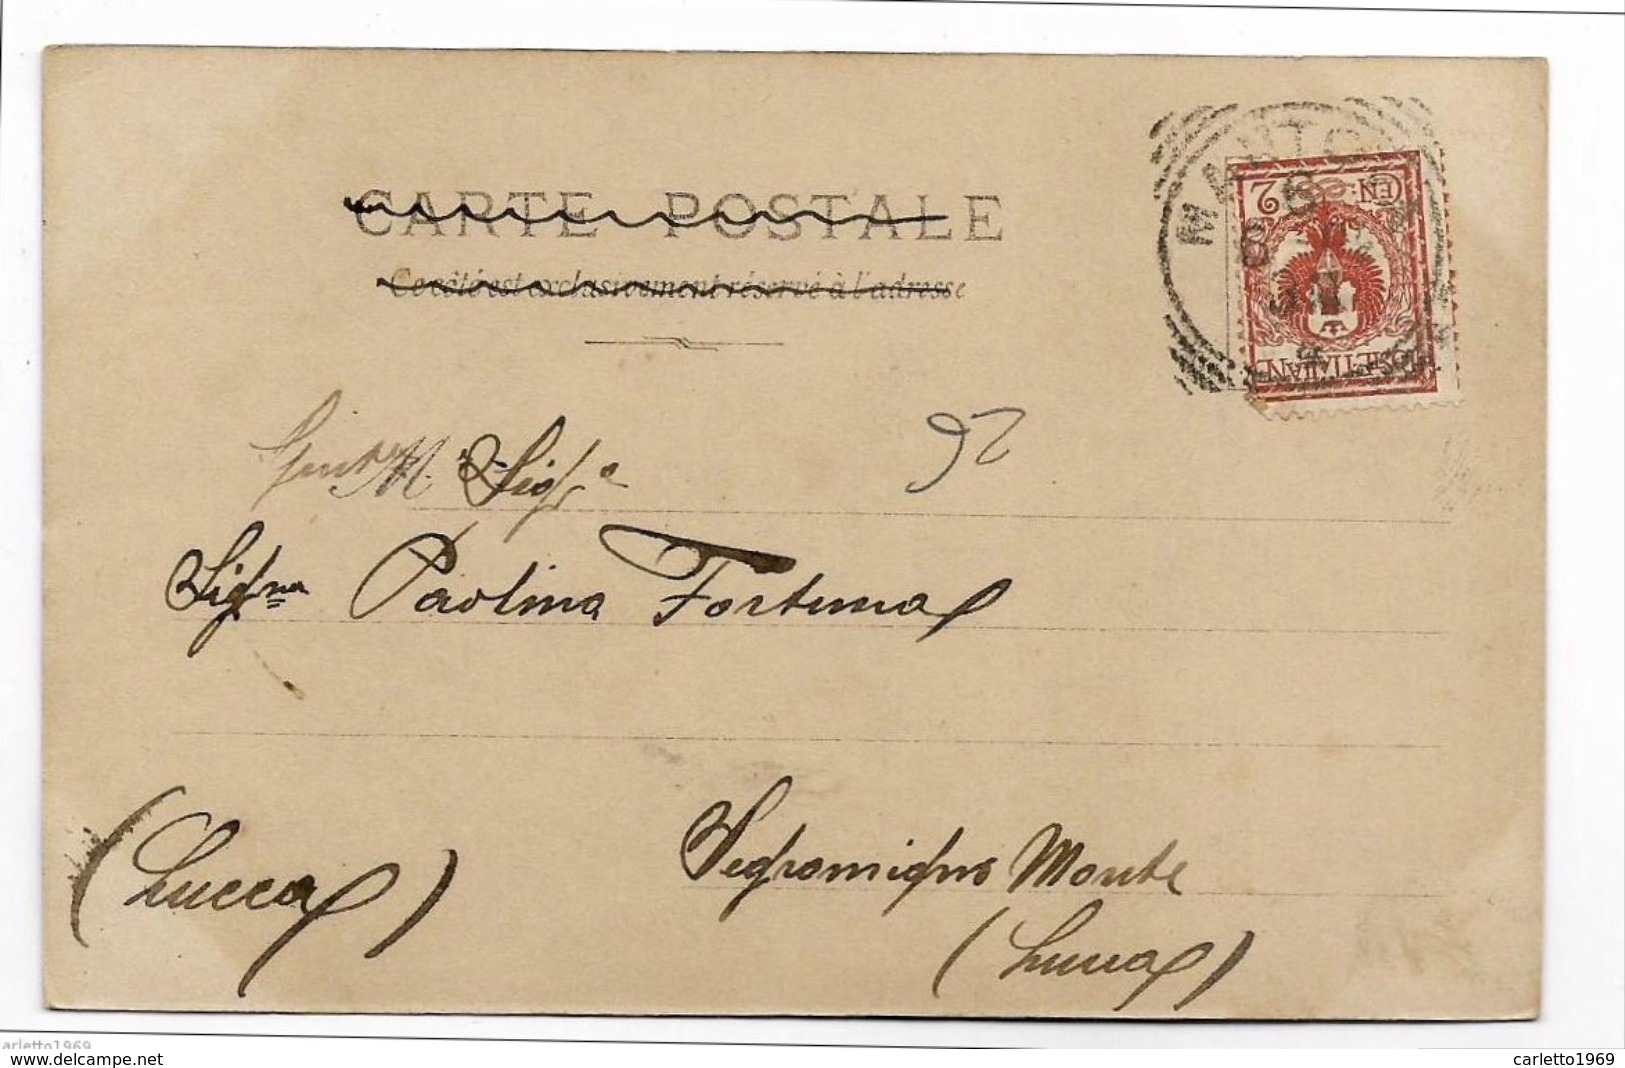 CARTE POSTALE
Ce côté est exclusivement réservé à l'adresse
MANTO
CEN: 2
POSTE ITALIANE
92
M. Sigr.a
Sig.na Paolina Fortuna
Segromigno Monte
(Lucca)
(Lucca)
arletto1969
www.delcampe.net
carletto1969